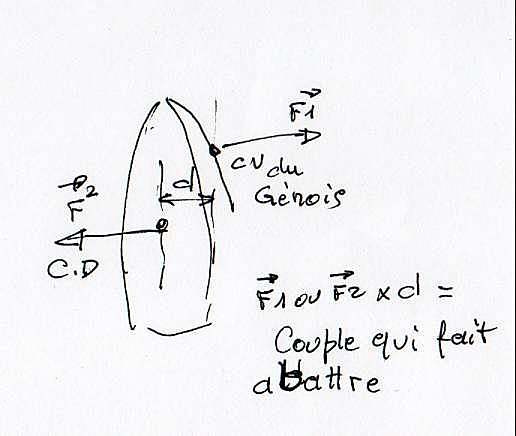 F1
CV du
Génois
d
F2
C.D
F1 ou F2 x d =
Couple qui fait
abattre